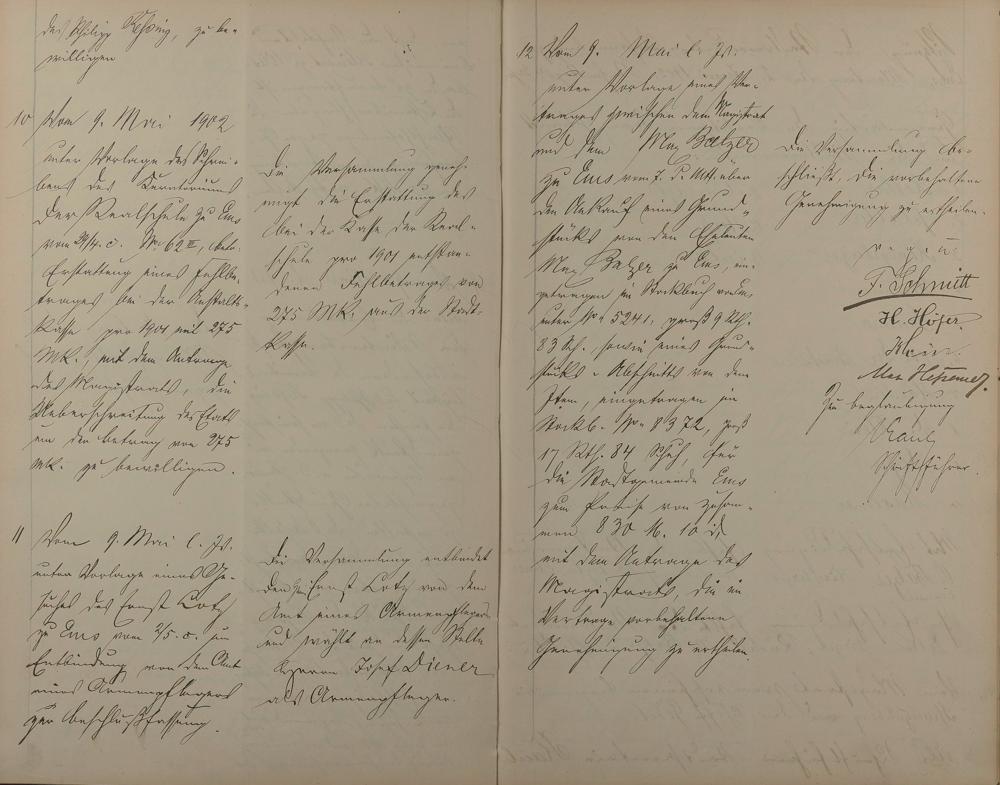 des Philipp Rehsing, zu be-
willigen
10 Vom 9. Mai 1902
unter Vorlage des Schrei-
bens des Curatoriums
der Realschule zu Ems
vom 29/4. c. No 62 II, betr.
Erstattung eines Fehlbe-
trages bei der Anstalts-
kasse pro 1901 mit 275
Mk., mit dem Antrage
des Magistrats, die
Ueberschreitung des Etats
um den Betrag von 275
Mk. zu bewilligen.
Die Versammlung geneh-
migt die Erstattung des
bei der Kasse der Real-
schule pro 1901 entstan-
denen Fehlbetrages von
275 Mk. aus der Stadt-
kasse.
11 Vom 9. Mai l. Js.
unter Vorlage eines Ge-
suches des Ernst Lotz
zu Ems vom 2/5. c. um
Entbindung von dem Amt
eines Armenpflegers
zur Beschlußfassung.
Die Versammlung entbindet
den Ernst Lotz von dem
Amt eines Armenpflegers
und wählt an dessen Stelle
Herrn Josef Diener
als Armenpfleger.
12 Vom 9. Mai l. Js.
unter Vorlage eines Ver-
trages zwischen dem Magistrat
und dem Max Balzer
zu Ems vom 7. d. Mts. über
den Ankauf eines Grund-
stücks von den Eheleuten
Max Balzer zu Ems, ein-
getragen im Stockbuch von Ems
unter No 5241, groß 9 Rth.
83 Sch., sowie eines Grund-
stücks-Abschnitts von dem
Item, eingetragen im
Stockb. No 8372, groß
17 Rth. 84 Schuh, für
die Stadtgemeinde Ems
zum Preise von zusam-
men 830 M. 10 d,
mit dem Antrage des
Magistrats, die im
Vertrage vorbehaltene
Genehmigung zu ertheilen.
Die Versammlung be-
schließt, die vorbehaltene
Genehmigung zu ertheilen.
v. g. u.
F. Schmitt
H. Höfer.
Klein.
Max
Zur Beglaubigung
Kaul
Schriftführer.